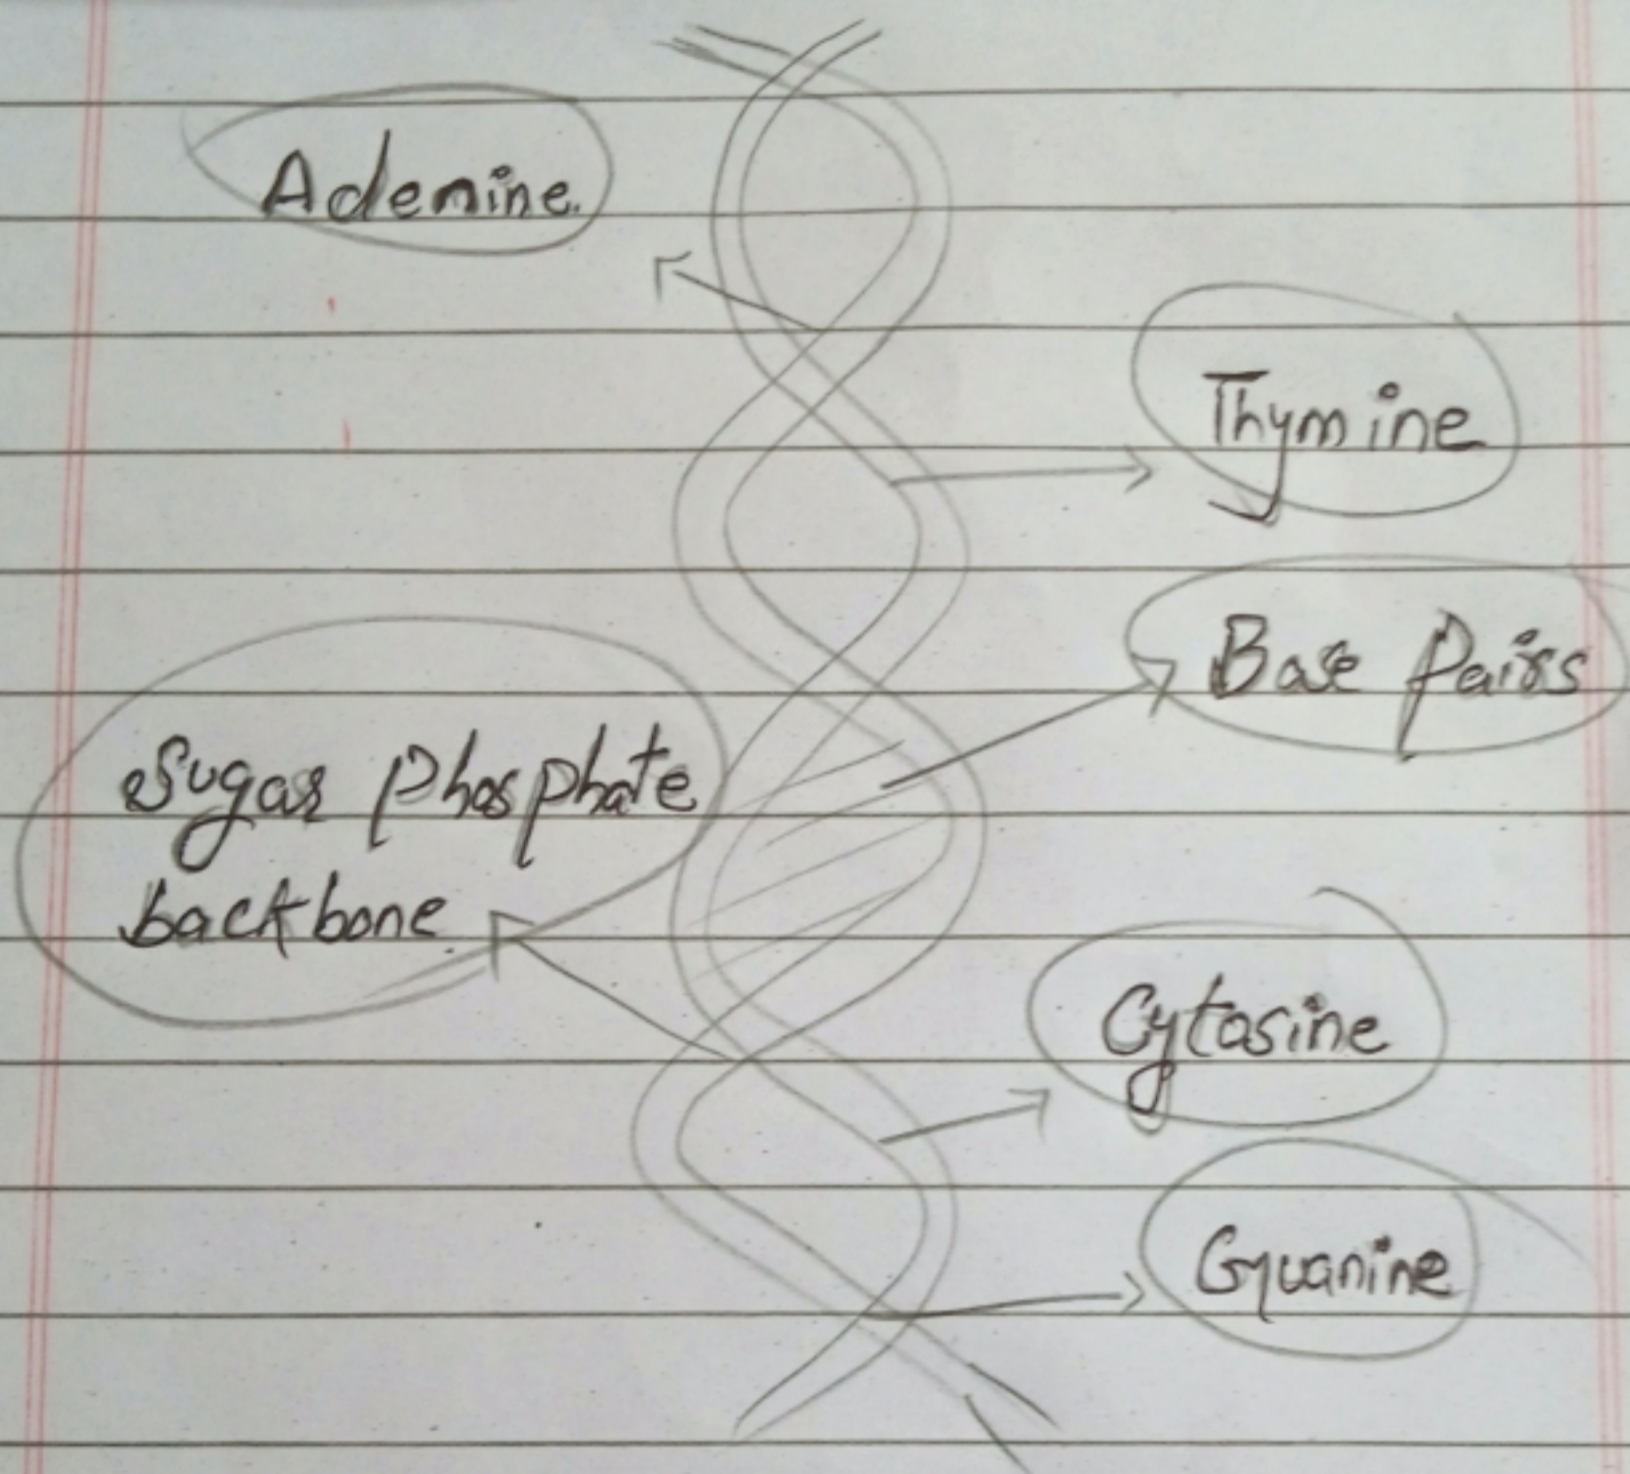 Adenine.
Thymine
Base Pairs
Sugar Phosphate
backbone
Cytosine
Guanine